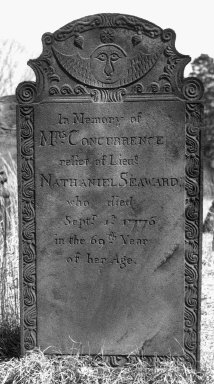 In Memory of
Mrs. CONCURRENCE
relict of Lieut.
NATHANIEL SEAWARD,
who died
Septr. 1st 1776
in the 60th Year
of her Age.